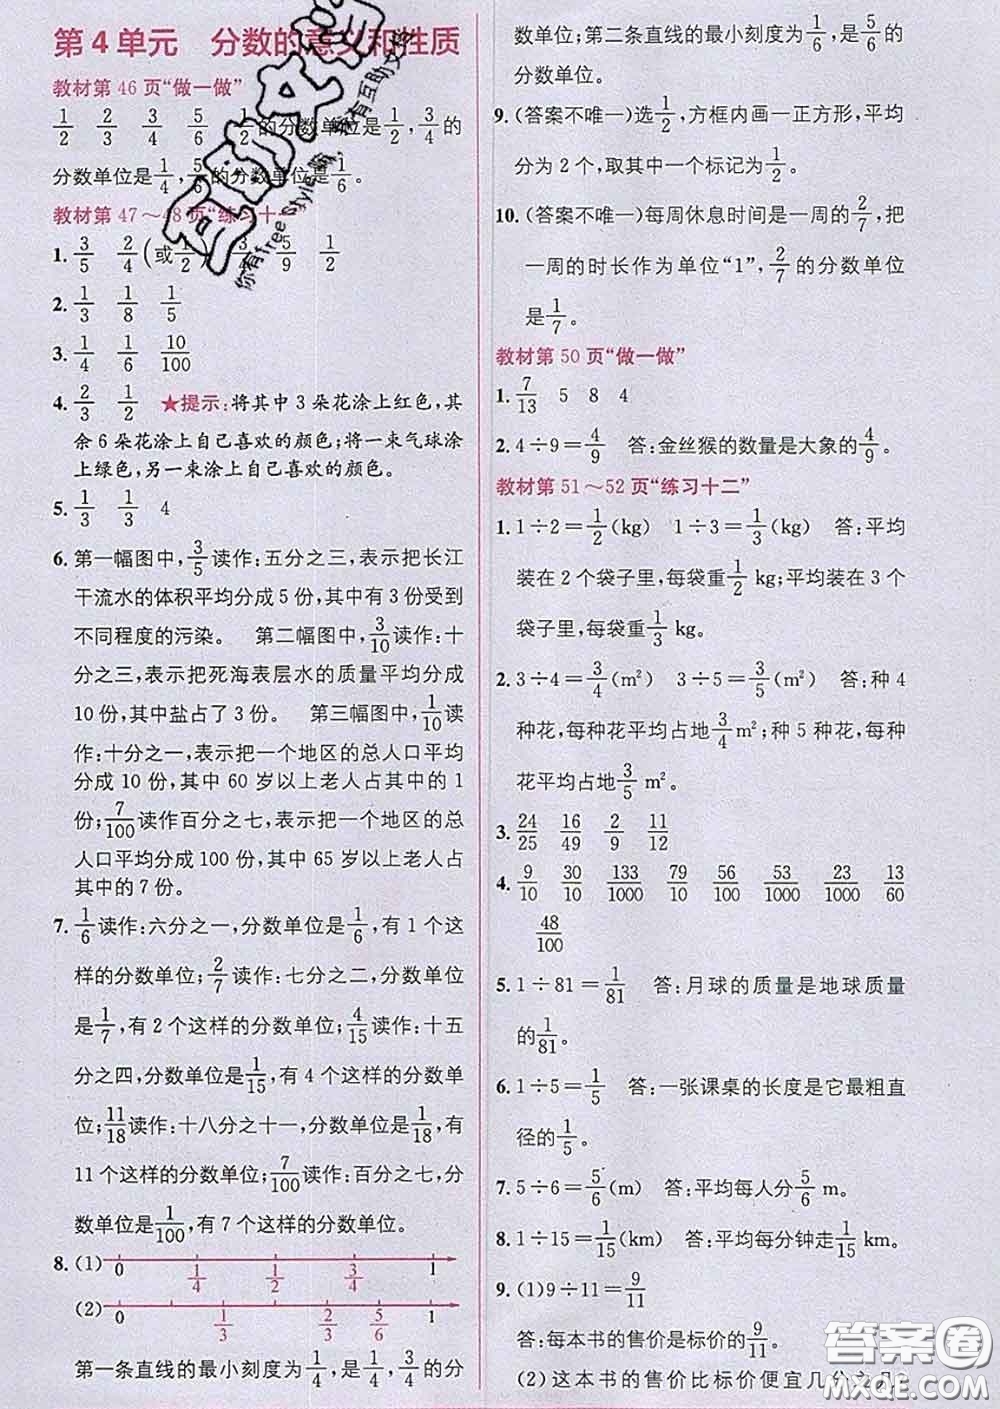 第4单元 分数的意义和性质
教材第46页“做一做”
1/2 2/3 3/4 5/6 1/2的分数单位是1/2,3/4的
分数单位是1/4,5/6的分数单位是1/6。
教材第47～48页“练习十一”
1. 3/5 2/4(或1/2) 5/9 1/2
2. 1/3 1/8 1/5
3. 1/4 1/6 10/100
4. 2/3 1/2 ★提示:将其中3朵花涂上红色,其
余6朵花涂上自己喜欢的颜色;将一束气球涂
上绿色,另一束涂上自己喜欢的颜色。
5. 1/3 1/3 4
6. 第一幅图中,3/5读作:五分之三,表示把长江
干流水的体积平均分成5份,其中有3份受到
不同程度的污染。 第二幅图中,3/10读作:十
分之三,表示把死海表层水的质量平均分成
10份,其中盐占了3份。 第三幅图中,1/10读
作:十分之一,表示把一个地区的总人口平均
分成10份,其中60岁以上老人占其中的1
份;7/100读作百分之七,表示把一个地区的总
人口平均分成100份,其中65岁以上老人占
其中的7份。
7. 1/6读作:六分之一,分数单位是1/6,有1个这
样的分数单位;2/7读作:七分之二,分数单位
是1/7,有2个这样的分数单位;4/15读作:十五
分之四,分数单位是1/15,有4个这样的分数单
位;11/18读作:十八分之十一,分数单位是1/18,有
11个这样的分数单位;7/100读作:百分之七,分
数单位是1/100,有7个这样的分数单位。
8. (1) 0 1/4 1/2 3/4 1
(2) 0 1/3 2/3 5/6 1
第一条直线的最小刻度为1/4,是1/4,3/4的分
数单位;第二条直线的最小刻度为1/6,是5/6的
分数单位。
9. (答案不唯一)选1/2,方框内画一正方形,平均
分为2个,取其中一个标记为1/2。
10. (答案不唯一)每周休息时间是一周的2/7,把
一周的时长作为单位“1”,2/7的分数单位
是1/7。
教材第50页“做一做”
1. 7/13 5 8 4
2. 4÷9=4/9 答:金丝猴的数量是大象的4/9。
教材第51～52页“练习十二”
1. 1÷2=1/2(kg) 1÷3=1/3(kg) 答:平均
装在2个袋子里,每袋重1/2 kg;平均装在3个
袋子里,每袋重1/3 kg。
2. 3÷4=3/4(m²) 3÷5=3/5(m²) 答:种4
种花,每种花平均占地3/4 m²;种5种花,每种
花平均占地3/5 m²。
3. 24/25 16/49 2/9 11/12
4. 9/10 30/10 133/1000 79/100 56/100 53/1000 23/1000 13/60
48/100
5. 1÷81=1/81 答:月球的质量是地球质量
的1/81。
6. 1÷5=1/5 答:一张课桌的长度是它最粗直
径的1/5。
7. 5÷6=5/6(m) 答:平均每人分5/6 m。
8. 1÷15=1/15(km) 答:平均每分钟走1/15 km。
9. (1)9÷11=9/11
答:每本书的售价是标价的9/11。
(2)这本书的售价比标价便宜几分之几?
答案圈
MXQE.COM